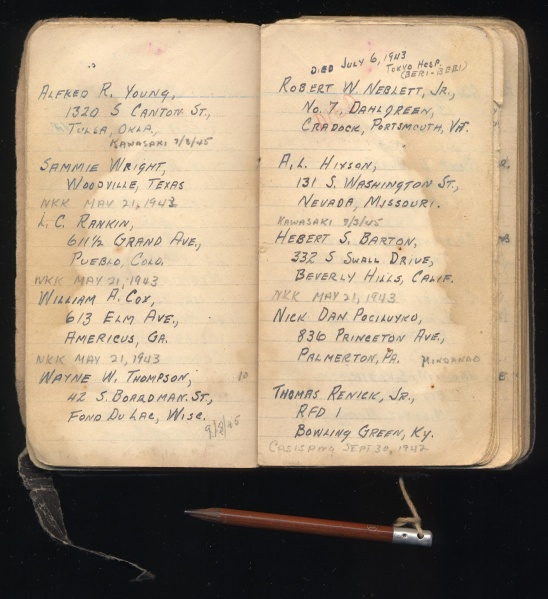 ALFRED R. YOUNG,
1320 S CANTON ST.,
TULSA, OKLA.,
KAWASAKI 9/3/45
SAMMIE WRIGHT,
WOODVILLE, TEXAS
NKK MAY 21, 1943
L. C. RANKIN,
611½ GRAND AVE,
PUEBLO, COLO.
NKK MAY 21, 1943
WILLIAM A. COX,
613 ELM AVE.,
AMERICUS, GA.
NKK MAY 21, 1943
WAYNE W. THOMPSON, 10
42 S. BOARDMAN. ST.,
FOND DU LAC, WISC.
DIED JULY 6, 1943
TOKYO HOSP.
(BERI-BERI)
ROBERT W. NEBLETT, JR.,
NO. 7, DAHLGREEN,
CRADOCK, PORTSMOUTH, VA.
A.L. HIXSON,
131 S. WASHINGTON ST.,
NEVADA, MISSOURI.
KAWASAKI 9/3/45
HEBERT S. BARTON,
332 S SWALL DRIVE,
BEVERLY HILLS, CALIF.
NKK MAY 21, 1943
NICK DAN POCILUYKO,
836 PRINCETON AVE.,
PALMERTON, PA. MINDANAO
THOMAS RENICK, JR.,
RFD 1
BOWLING GREEN, KY.
CASISANG SEPT 30, 1942